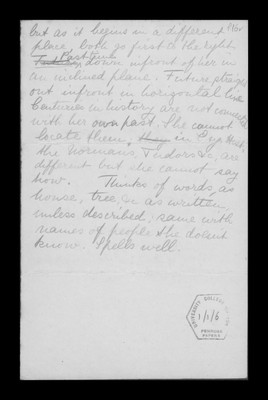 but as it begins in a different
place, both go first to the right.
Past time down infront of her in
an inclined plane. Future straight
out infront in horizontal line
Centuries in history are not connected
with her own past. She cannot
locate them, in
the Normans, Tudors &c, are
different but she cannot say
how. Thinks of words, as
house, tree, &c as written,
unless described; same with
names of people she doesnt
know. Spells well.
UNIVERSITY COLLEGE LONDON
1/1/6
PEARSON
PAPERS